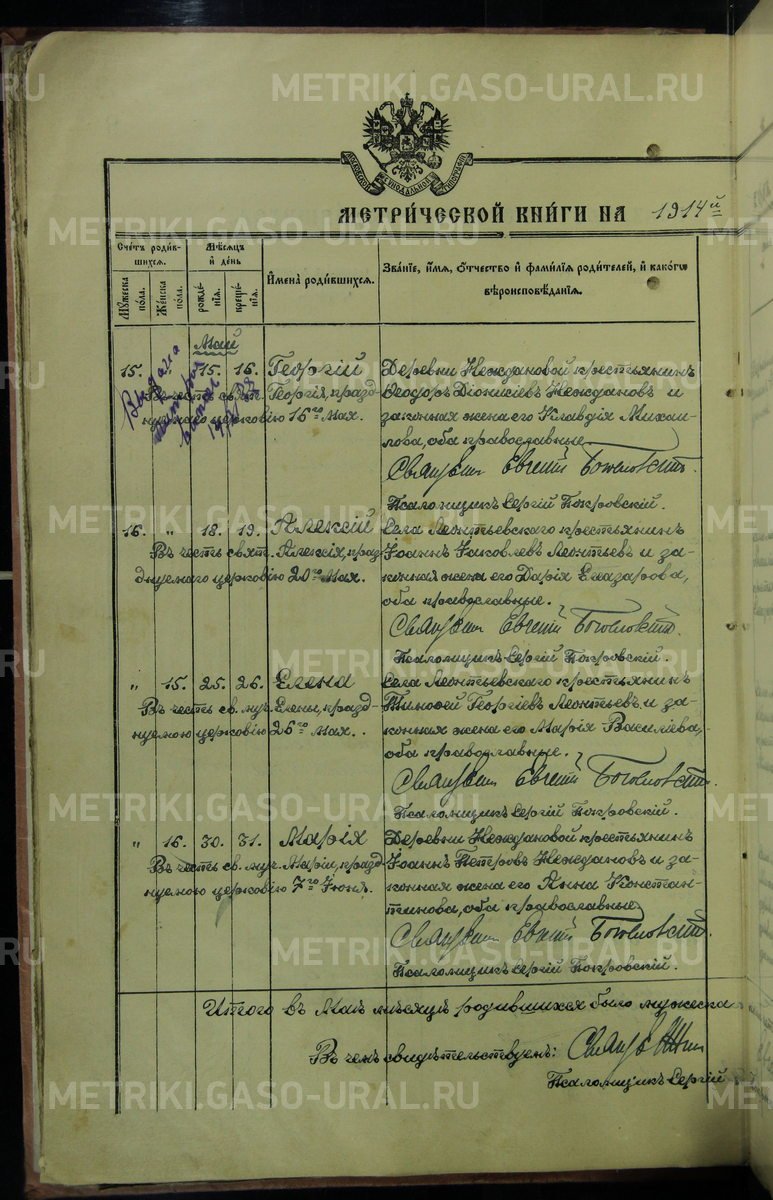 METRIKI.GASO-URAL.RU
МОСКОВСКОЙ СѴНОДАЛЬНОЙ ТИПОГРАФІИ
МЕТРИ́ЧЕСКОЙ КНИ́ГИ НА 1914й
Счетъ роди́вшихся.
Мужеска пола.
Женска пола.
Мѣсяцъ и день
рожденія.
крещенія.
Имена̀ роди́вшихся.
Зва́ніе, и́мя, о́тчество и фами́лія роди́телей, и како́гѡ вѣроисповѣ́данія.
Май
15. 15. 16. Георгій
Въ честь свят. Георгія, празднуемаго церковію 16го Мая.
Выдана
Деревни Неждановой крестьянинъ
Ѳеодоръ Діонисіевъ Неждановъ и
законная жена его Клавдія Михаилова, оба православные.
Священникъ Евгеній Богословскій.
Псаломщикъ Сергій Покровскій.
16. " 18. 19. Алексій
Въ честь свят. Алексія, празднуемаго церковію 20го Мая.
Села Леонтьевскаго крестьянинъ
Іоаннъ Іаковлевъ Леонтьевъ и законная жена его Дарія Елазарова,
оба православные.
Священникъ Евгеній Богословскій.
Псаломщикъ Сергій Покровскій.
" 15. 25. 26. Елена
Въ честь св. муч. Елены, празднуемою церковію 26го Мая.
Села Леонтьевскаго крестьянинъ
Тимоѳей Георгіевъ Леонтьевъ и законная жена его Марія Василіева,
оба православные.
Священникъ Евгеній Богословскій.
Псаломщикъ Сергій Покровскій.
" 16. 30. 31. Марія
Въ честь св. муч. Маріи, празднуемою церковію 7го Іюня.
Деревни Неждановой крестьянинъ
Іоаннъ Петровъ Неждановъ и законная жена его Анна Константинова, оба православные.
Священникъ Евгеній Богословскій.
Псаломщикъ Сергій Покровскій.
Итого въ Маѣ мѣсяцѣ родившихся было мужеска
Въ чемъ свидѣтельствуемъ: Священникъ
Псаломщикъ Сергій